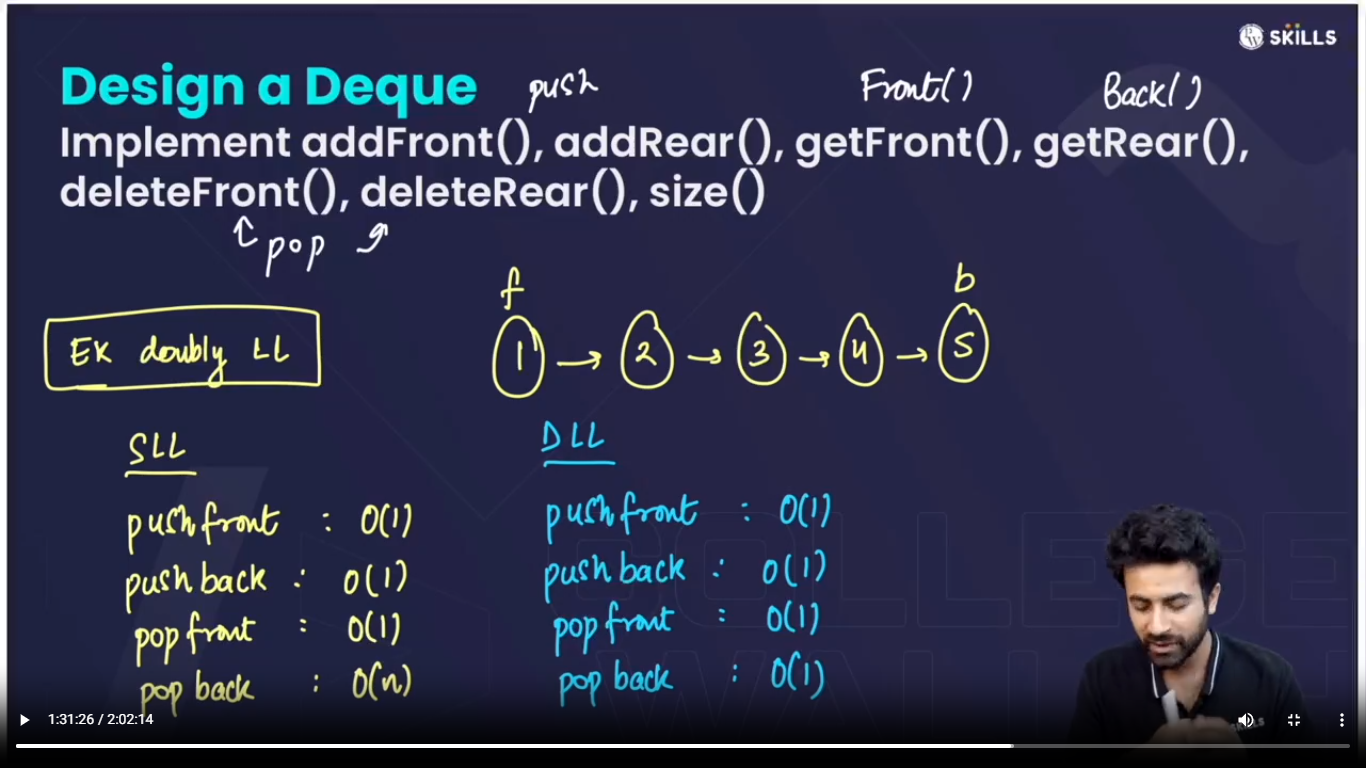 PW SKILLS
Design a Deque push Front() Back()
Implement addFront(), addRear(), getFront(), getRear(),
deleteFront(), deleteRear(), size()
pop
f b
Ex doubly LL
1 → 2 → 3 → 4 → 5
SLL
push front : O(1)
push back : O(1)
pop front : O(1)
pop back : O(n)
DLL
push front : O(1)
push back : O(1)
pop front : O(1)
pop back : O(1)
COLLEGE
WALLAH
1:31:26 / 2:02:14